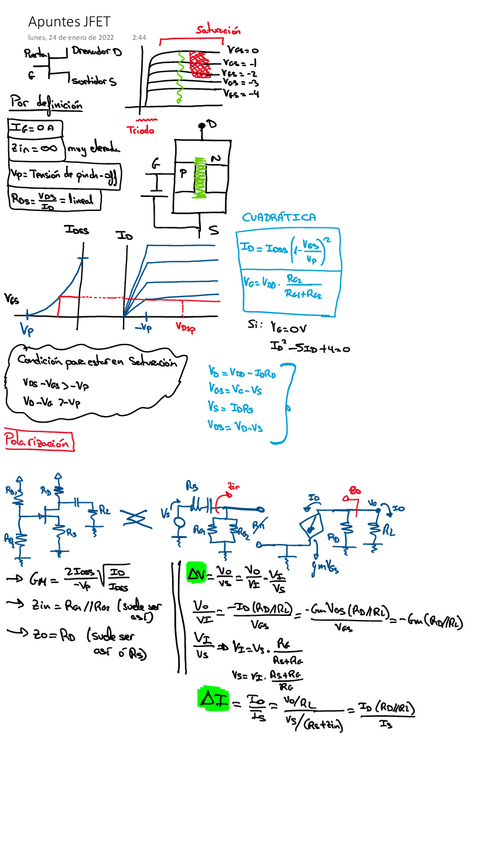 Apuntes JFET
lunes, 24 de enero de 2022 2:44
Puerta
G
Drenador D
Surtidor S
Saturación
VGS=0
VGS=-1
VGS=-2
VGS=-3
VGS=-4
Triodo
Por definición
IG=0A
Zin=∞ muy elevada
Vp=Tensión de pinch-off
RDS=VDS/ID=lineal
D
G
P
N
S
IDSS
ID
VGS
Vp
-Vp
VDSp
CUADRÁTICA
ID=IDSS(1-VGS/Vp)²
VG=VDD·RG2/(RG1+RG2)
Si: VG=0V
ID²-5ID+4=0
Condición para estar en Saturación
VDS-VGS>-Vp
VD-VG>-Vp
VD=VDD-IDRD
VGS=VG-VS
VS=IDRS
VDS=VD-VS
Polarización
RD
RL
RS
RG2
Rs
Zin
Vs
RG1
RG2
ID
Zo
Vo
IO
RD
RL
gmVGS
→ GM=2IDSS/-Vp √(ID/IDSS)
→ Zin=RG1//RG2 (suele ser así)
→ Zo=RD (suele ser así ó RS)
ΔV=Vo/Vs=Vo/VI·VI/Vs
Vo/VI=-ID(RD//RL)/VGS=-GmVGS(RD//RL)/VGS=-Gm(RD//RL)
VI/Vs⇒VI=Vs·RG/(RS+RG)
Vs=VI·(RS+RG)/RG
ΔI=Io/Is=(Vo/RL)/(Vs/(RS+Zin))=ID(RD//RL)/Is